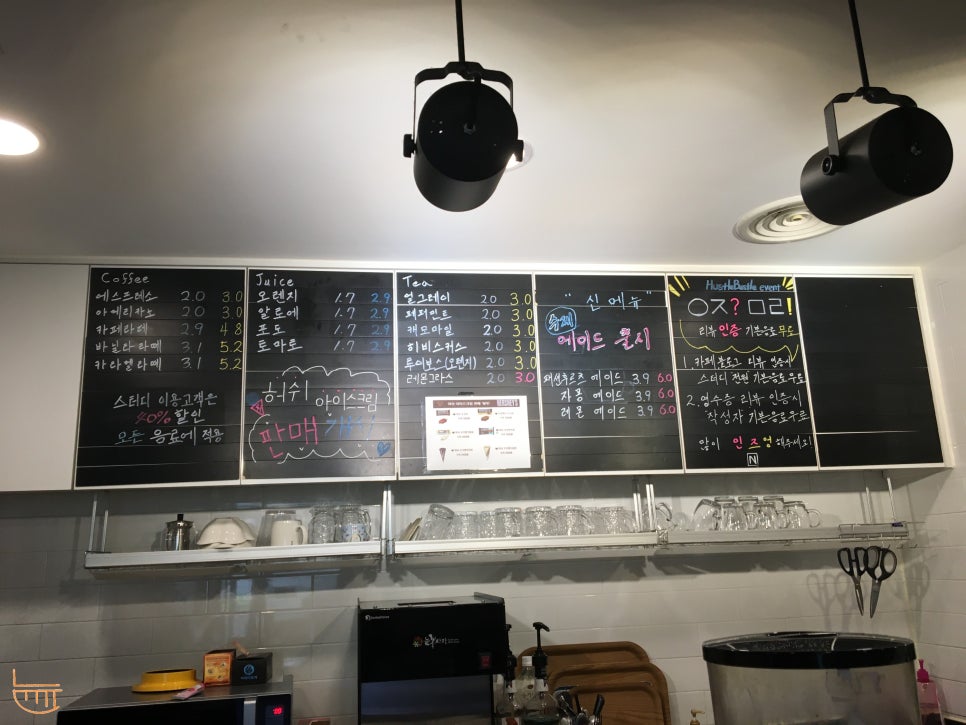 Coffee
에스프레소 2.0 3.0
아메리카노 2.0 3.0
카페라떼 2.9 4.8
바닐라라떼 3.1 5.2
카라멜라떼 3.1 5.2
스터디 이용고객은
40% 할인
모든 음료에 적용
Juice
오렌지 1.7 2.9
알로에 1.7 2.9
포도 1.7 2.9
토마토 1.7 2.9
허쉬 아이스크림
판매 개시
Tea
얼그레이 2.0 3.0
페퍼민트 2.0 3.0
캐모마일 2.0 3.0
히비스커스 2.0 3.0
루이보스(오렌지) 2.0 3.0
레몬그라스 2.0 3.0
HERSHEY'S
" 신 메뉴 "
수제
에이드 출시
패션후르츠 에이드 3.9 6.0
자몽 에이드 3.9 6.0
레몬 에이드 3.9 6.0
HustleBustle event
ㅇㅈ? ㅁㄹ!
리뷰 인증 기본음료 무료
1. 카페 블로그 리뷰 인증시
스터디 전원 기본음료 무료
2. 영수증 리뷰 인증시
작성자 기본음료 무료
많이 인즈엉 해주세요!
N